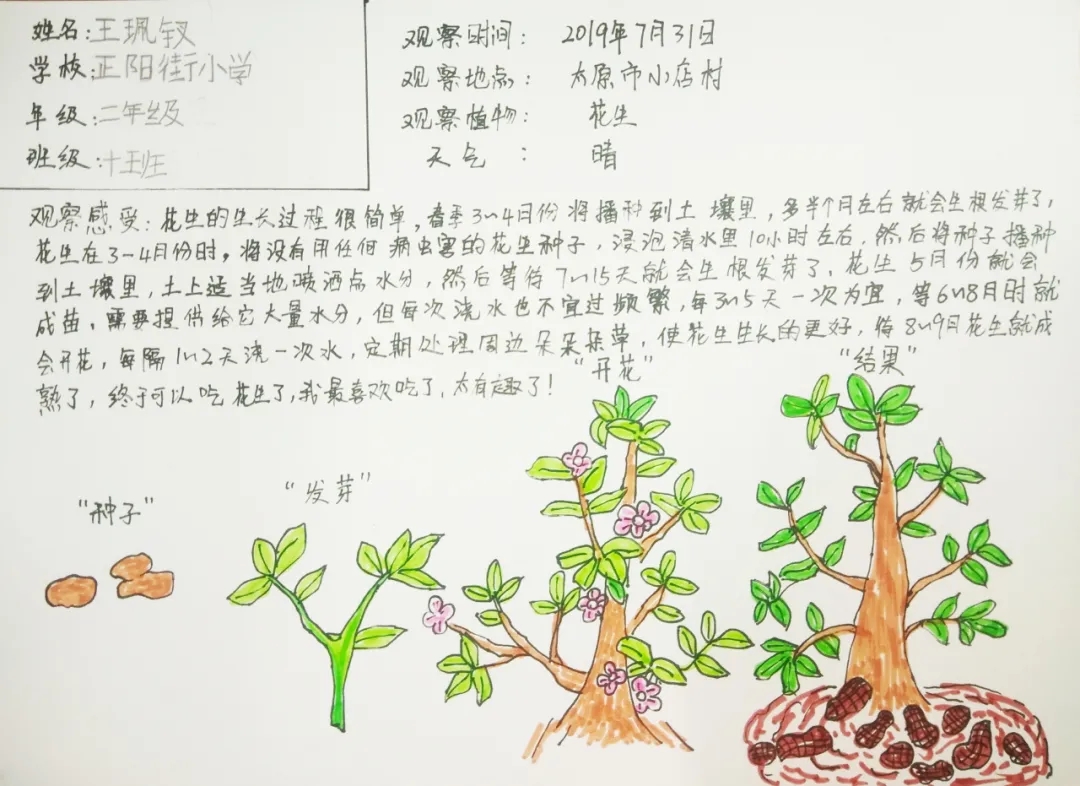 姓名:王珮钗
学校:正阳街小学
年级:二年级
班级:十五班
观察时间: 2019年7月31日
观察地点: 太原市小店村
观察植物: 花生
天气: 晴
观察感受:花生的生长过程很简单,春季3~4月份将播种到土壤里,多半个月左右就会生根发芽了,
花生在3-4月份时,将没有用任何病虫害的花生种子,浸泡清水里10小时左右,然后将种子播种
到土壤里,土上适当地喷洒点水分,然后等待7~15天就会生根发芽了、花生5月份就会
成苗,需要提供给它大量水分,但每次浇水也不宜过频繁,每3~5天一次为宜,等6~8月时就
会开花,每隔1~2天浇一次水,定期处理周边朵朵杂草,使花生生长的更好,待8~9月花生就成
熟了,终于可以吃花生了,我最喜欢吃了,太有趣了!
“种子”
“发芽”
“开花”
“结果”